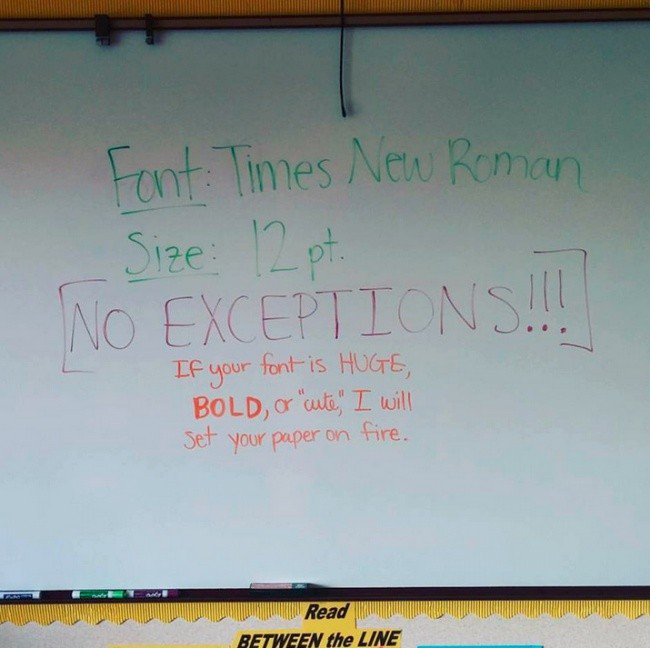 Font: Times New Roman
Size: 12 pt.
NO EXCEPTIONS!!!
If your font is HUGE,
BOLD, or "cute," I will
set your paper on fire.
Read
BETWEEN the LINE